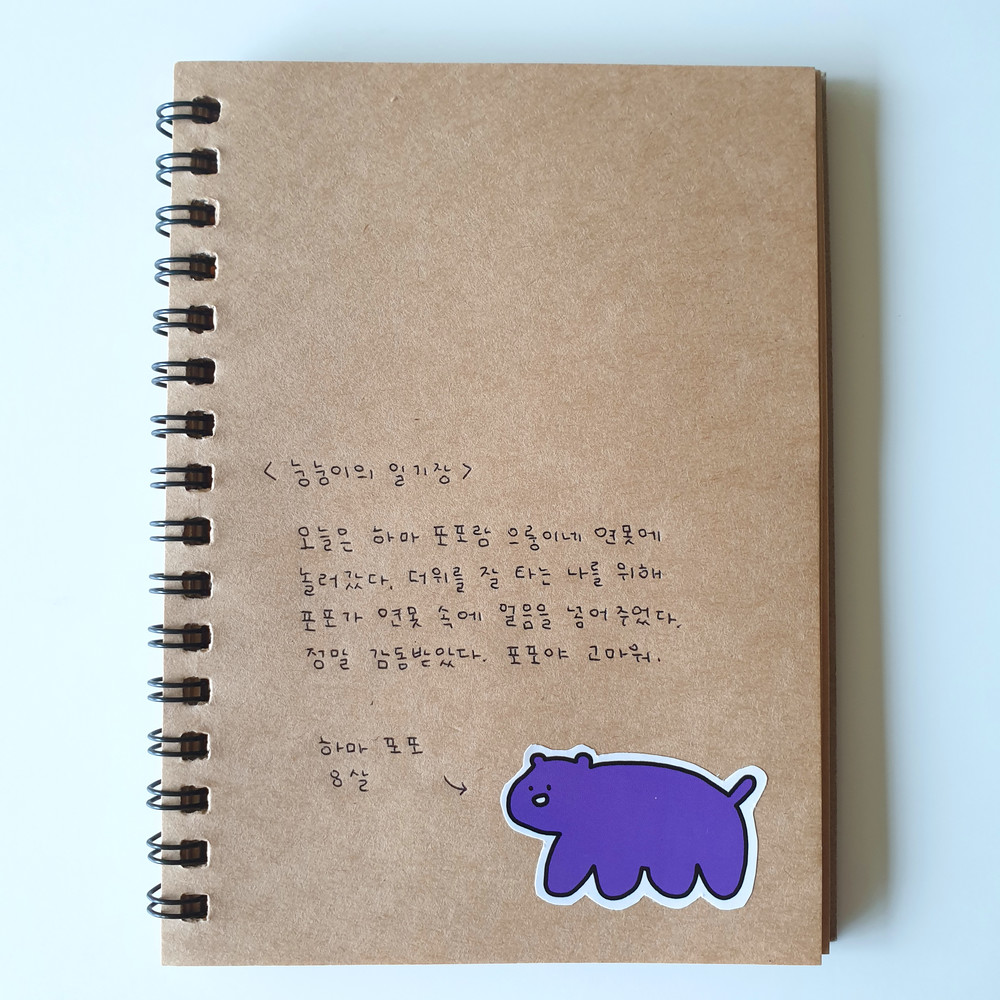 < 눙눙이의 일기장 >
오늘은 하마 포포랑 으릉이네 연못에
놀러갔다. 더위를 잘 타는 나를 위해
포포가 연못 속에 얼음을 넣어주었다.
정말 감동받았다. 포포야 고마워.
하마 포포
8살